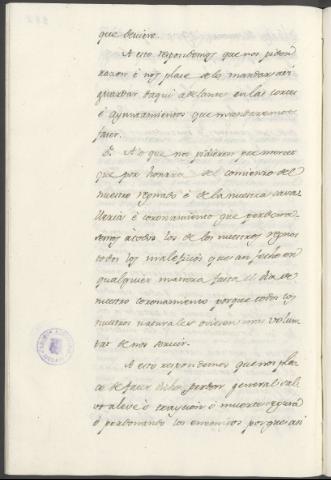 que deviere.
A esto respondemos que nos piden
razon è nos place de lo mandar asi
guardar daqui adelante en las cortes
è ayuntamientos que mandaremos
facer.
8. A lo que nos pidieron por merced
que por honrra del comienzo del
nuestro regnado è de la nuestra cava
lleria è coronamiento que perdona
semos a todos los de los nuestros regnos
todos los maleficios que an fecho en
qualquier manera fasta el dia de
nuestro coronamiento porque todos los
nuestros naturales oviesen mas volun
tad de nos servir.
A esto respondemos que nos pla
ce de facer dicho perdon general salv
o aleve ò traycion ò muerte segura
ò perdonando los enemigos porque asi